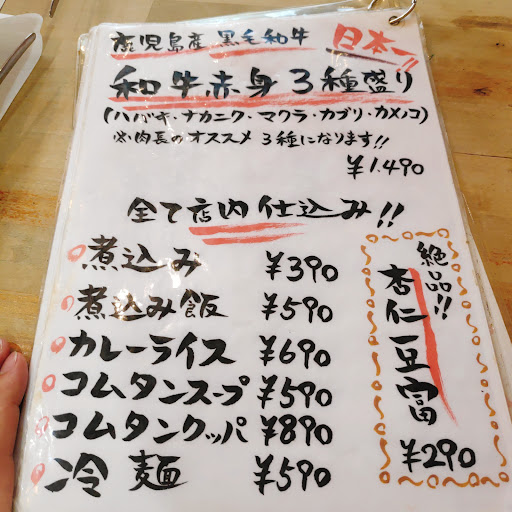 鹿児島産 黒毛和牛 日本一!!
和牛赤身3種盛り
(ハバキ・ナカニク・マクラ・カブリ・カメノコ)
※肉長のオススメ 3種になります!!
¥1.490
全て店内仕込み!!
煮込み ¥390
煮込み飯 ¥590
カレーライス ¥690
コムタンスープ ¥590
コムタンクッパ ¥890
冷麺 ¥590
絶品!!
杏仁豆富
¥290